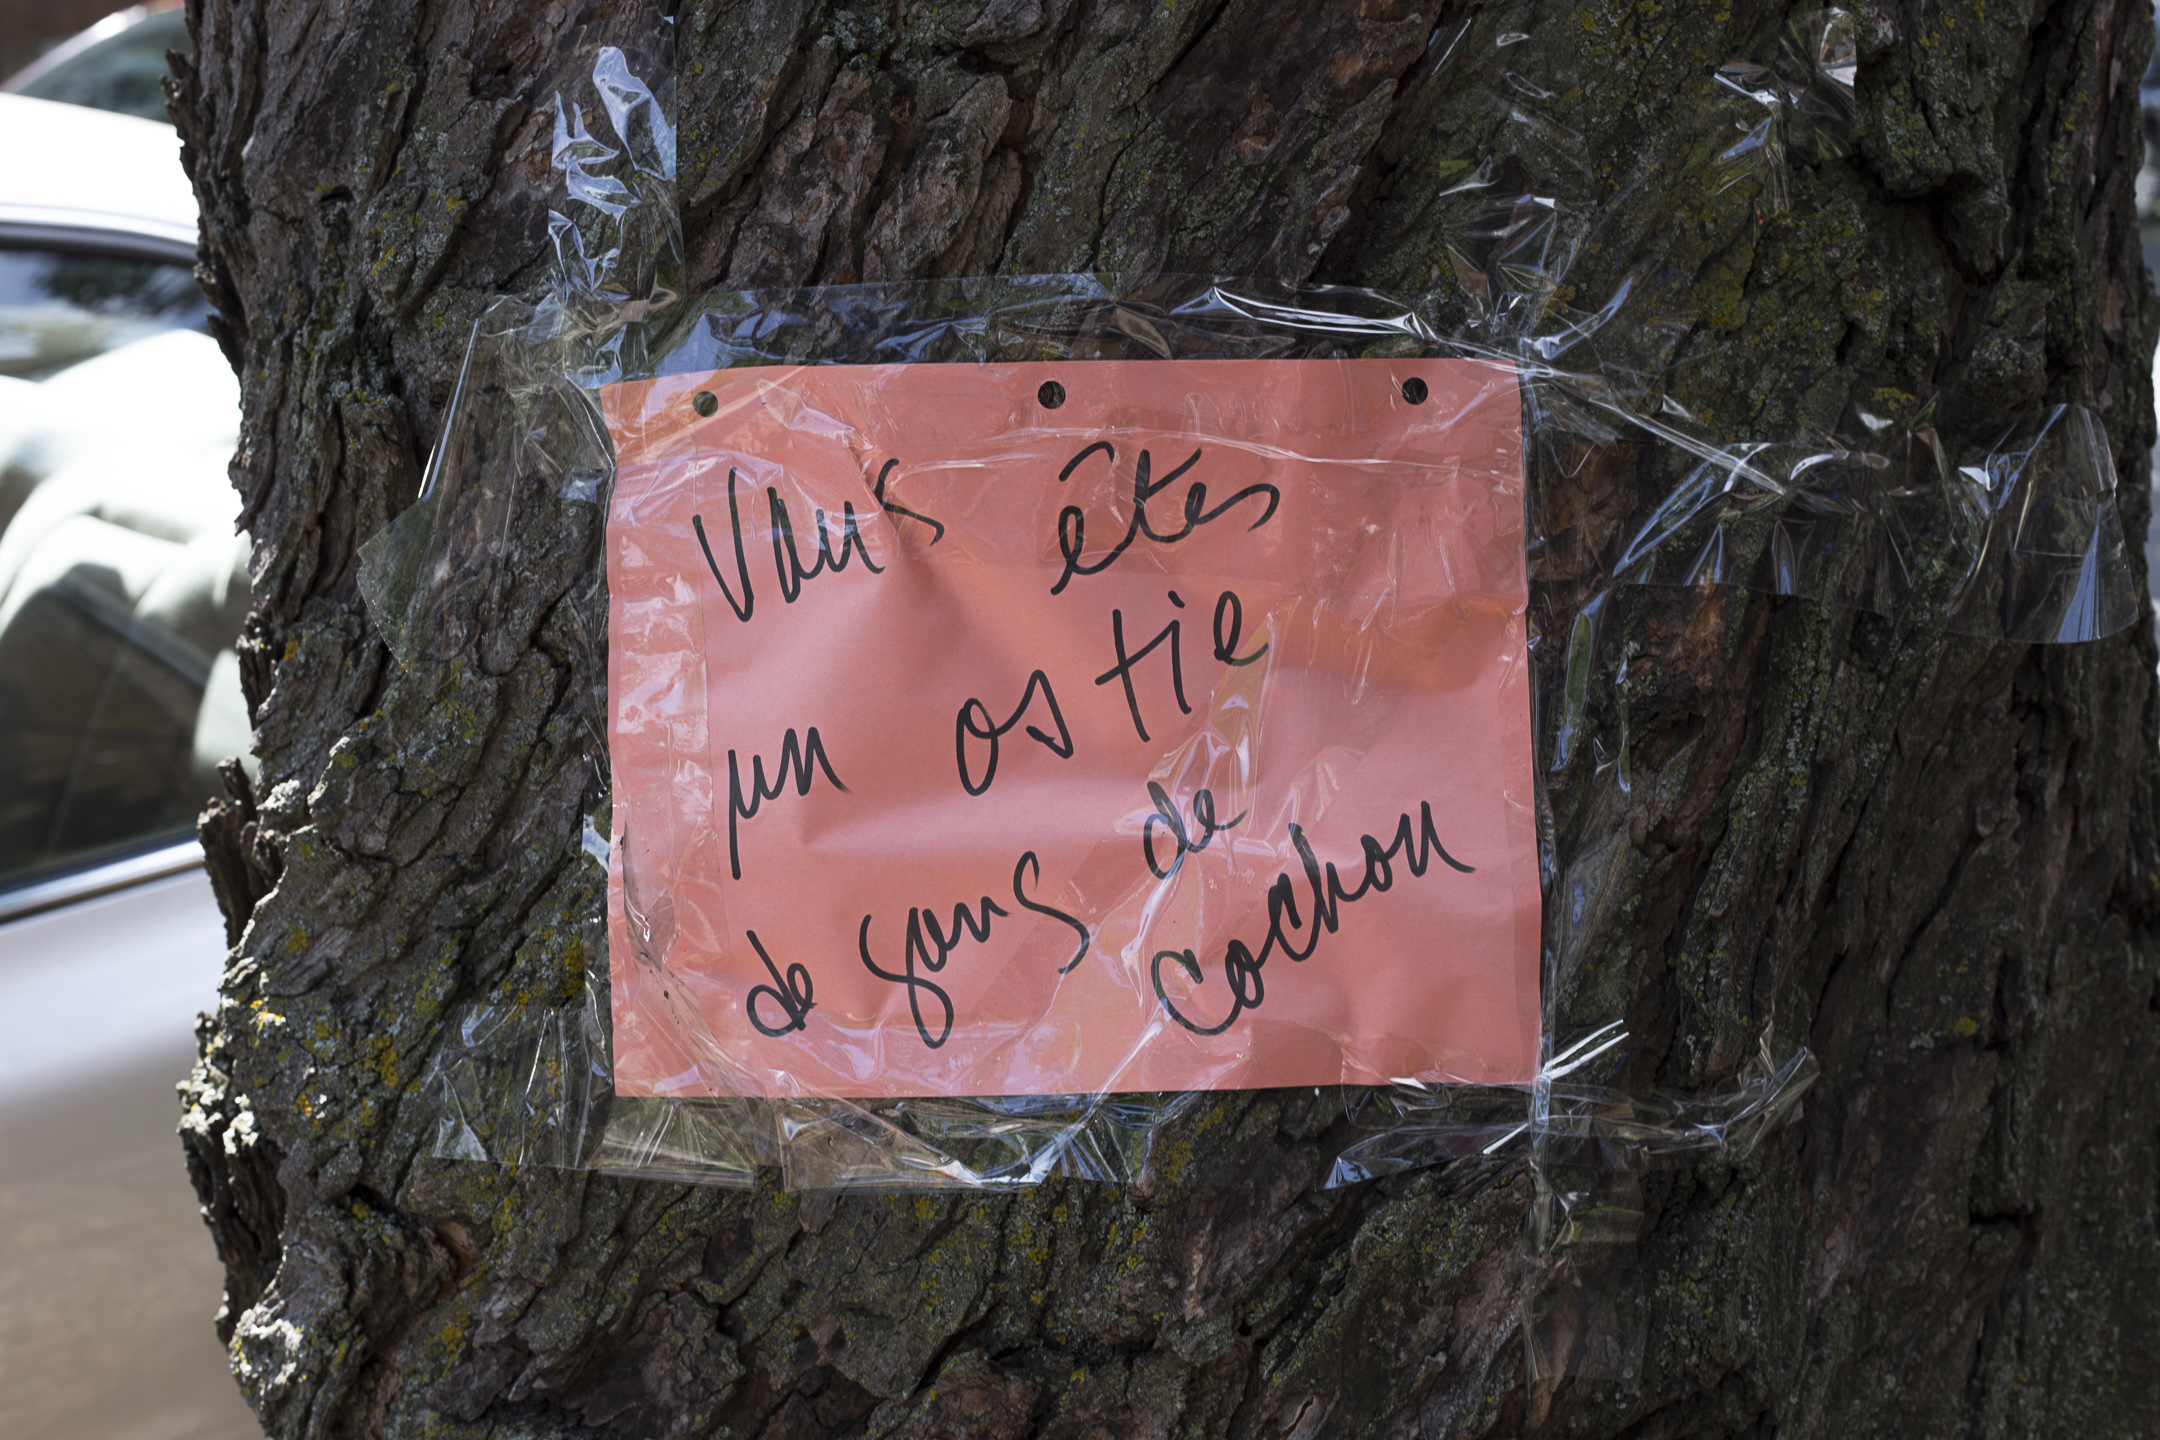 Vous êtes
un ostie
de gang de
cochon